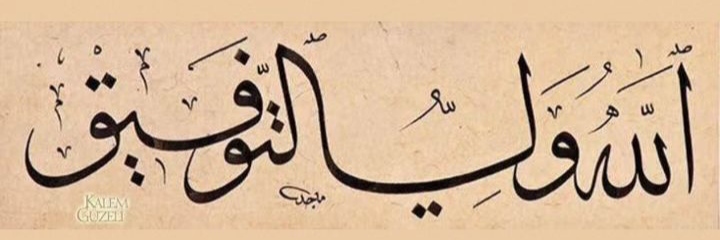 ٱللهُ وَلِيُّ ٱلتَّوْفِيقْ
ماجد
KALEM
GUZELİ